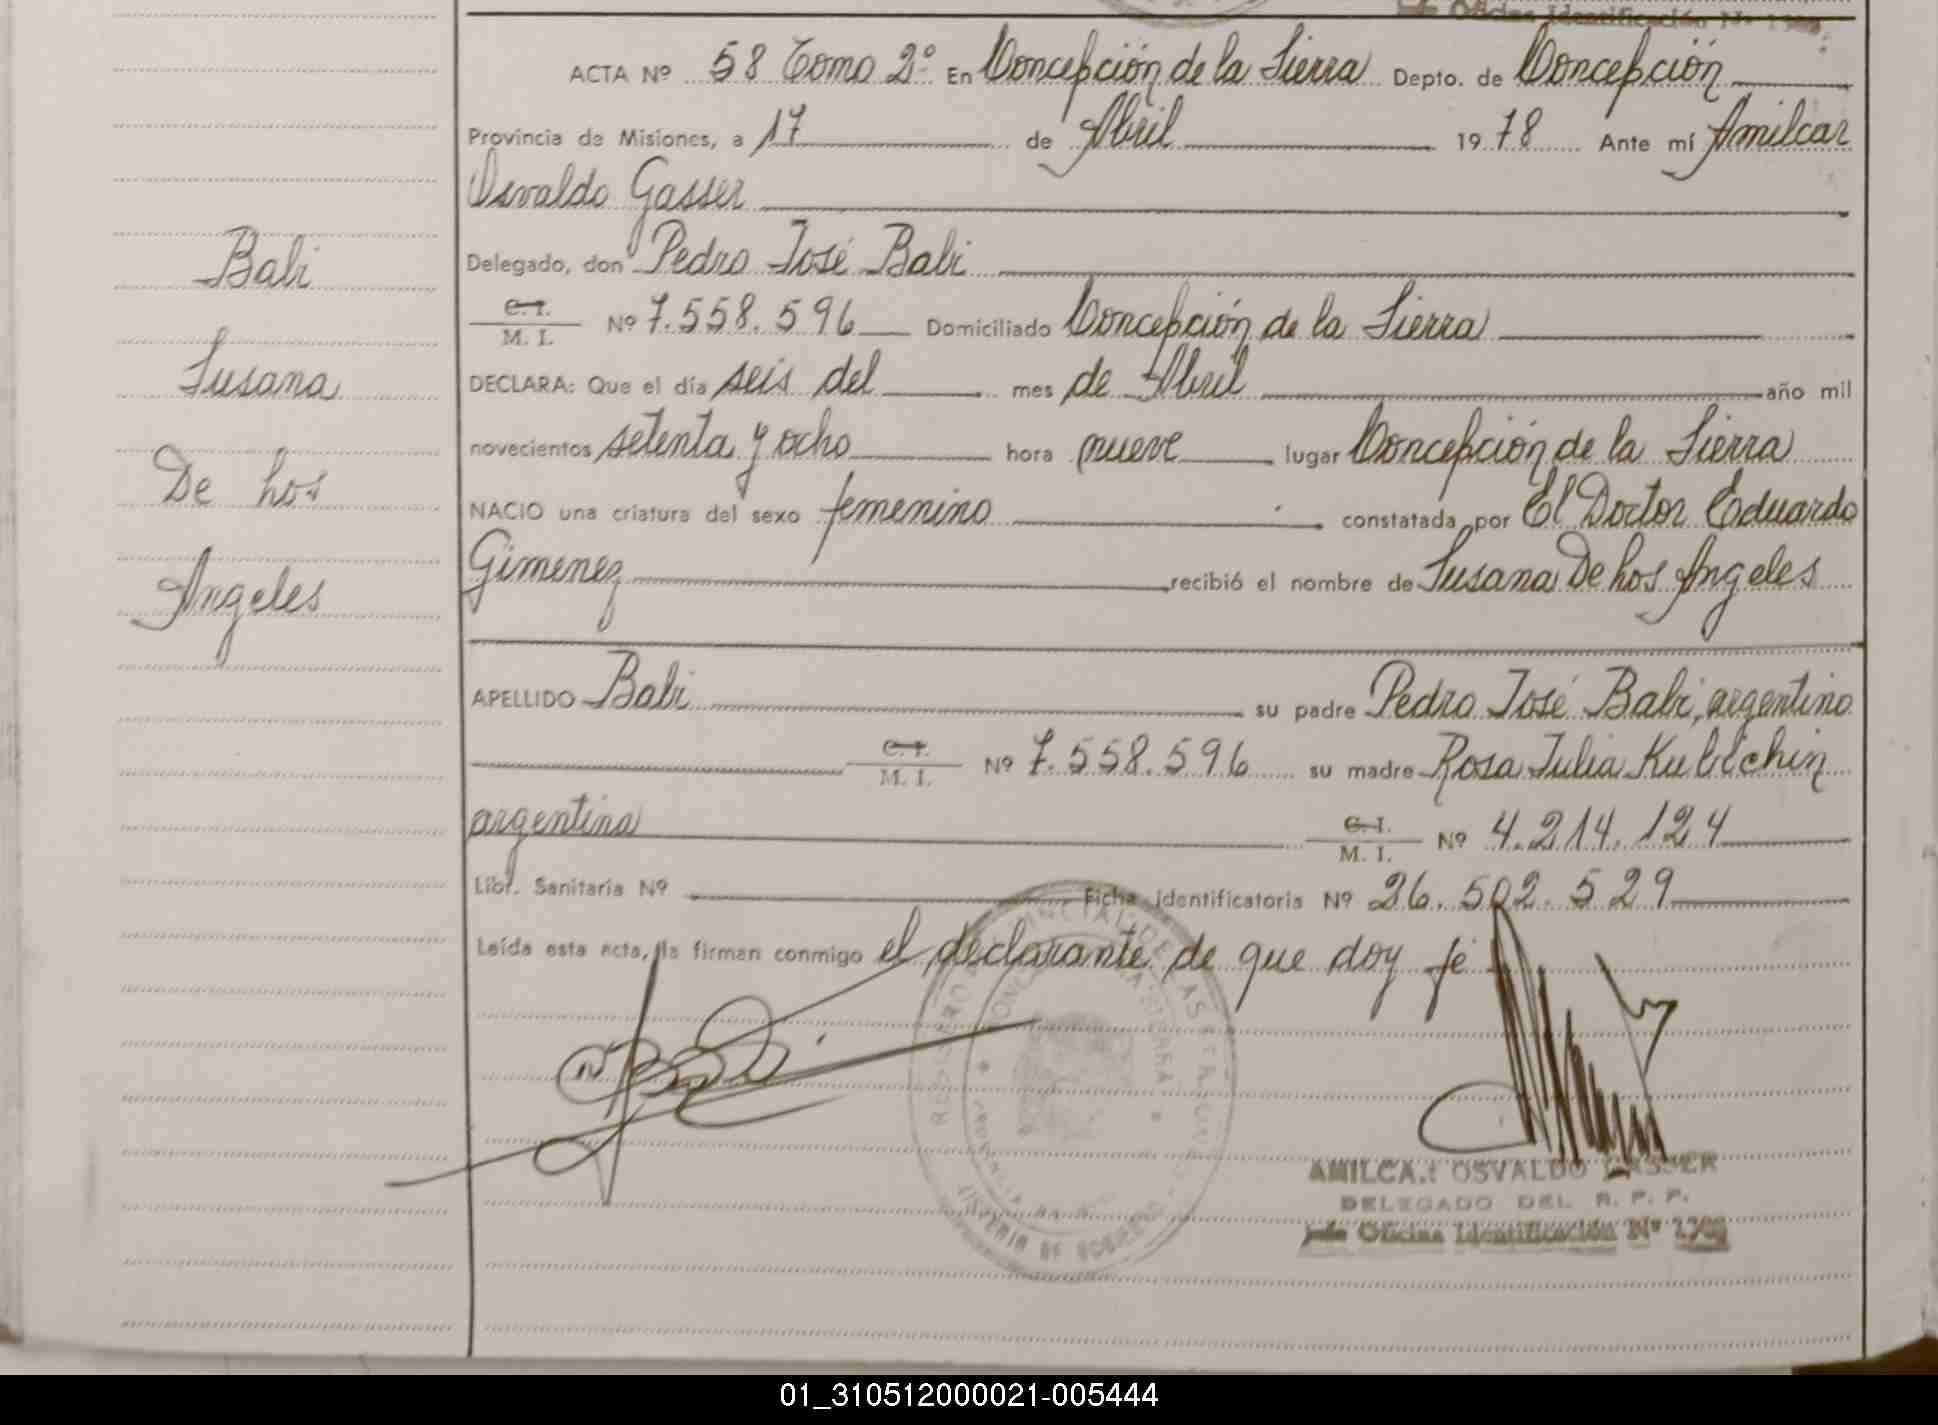 Oficina Identificación Nº 1700
ACTA Nº 58 Tomo 2º En Concepción de la Sierra Depto. de Concepción
Provincia de Misiones, a 17 de Abril 1978 Ante mí Amilcar
Osvaldo Gasser
Delegado, don Pedro José Babi
C. I.
M. I. Nº 7.558.596 Domiciliado Concepción de la Sierra
DECLARA: Que el día seis del mes de Abril año mil
novecientos setenta y ocho hora nueve lugar Concepción de la Sierra
NACIO una criatura del sexo femenino constatada por El Doctor Eduardo
Gimenez recibió el nombre de Susana De los Angeles
Babi
Susana
De los
Angeles
APELLIDO Babi su padre Pedro José Babi, argentino
C. I.
M. I. Nº 7.558.596 su madre Rosa Julia
argentina C. I.
M. I. Nº 4.214.124
Libr. Sanitaria Nº Ficha identificatoria Nº 26.502.529
Leída esta acta, la firman conmigo el declarante de que doy fé
AMILCAR OSVALDO GASSER
DELEGADO DEL R. P. P.
Jefe Oficina Identificación Nº 1700
01_310512000021-005444